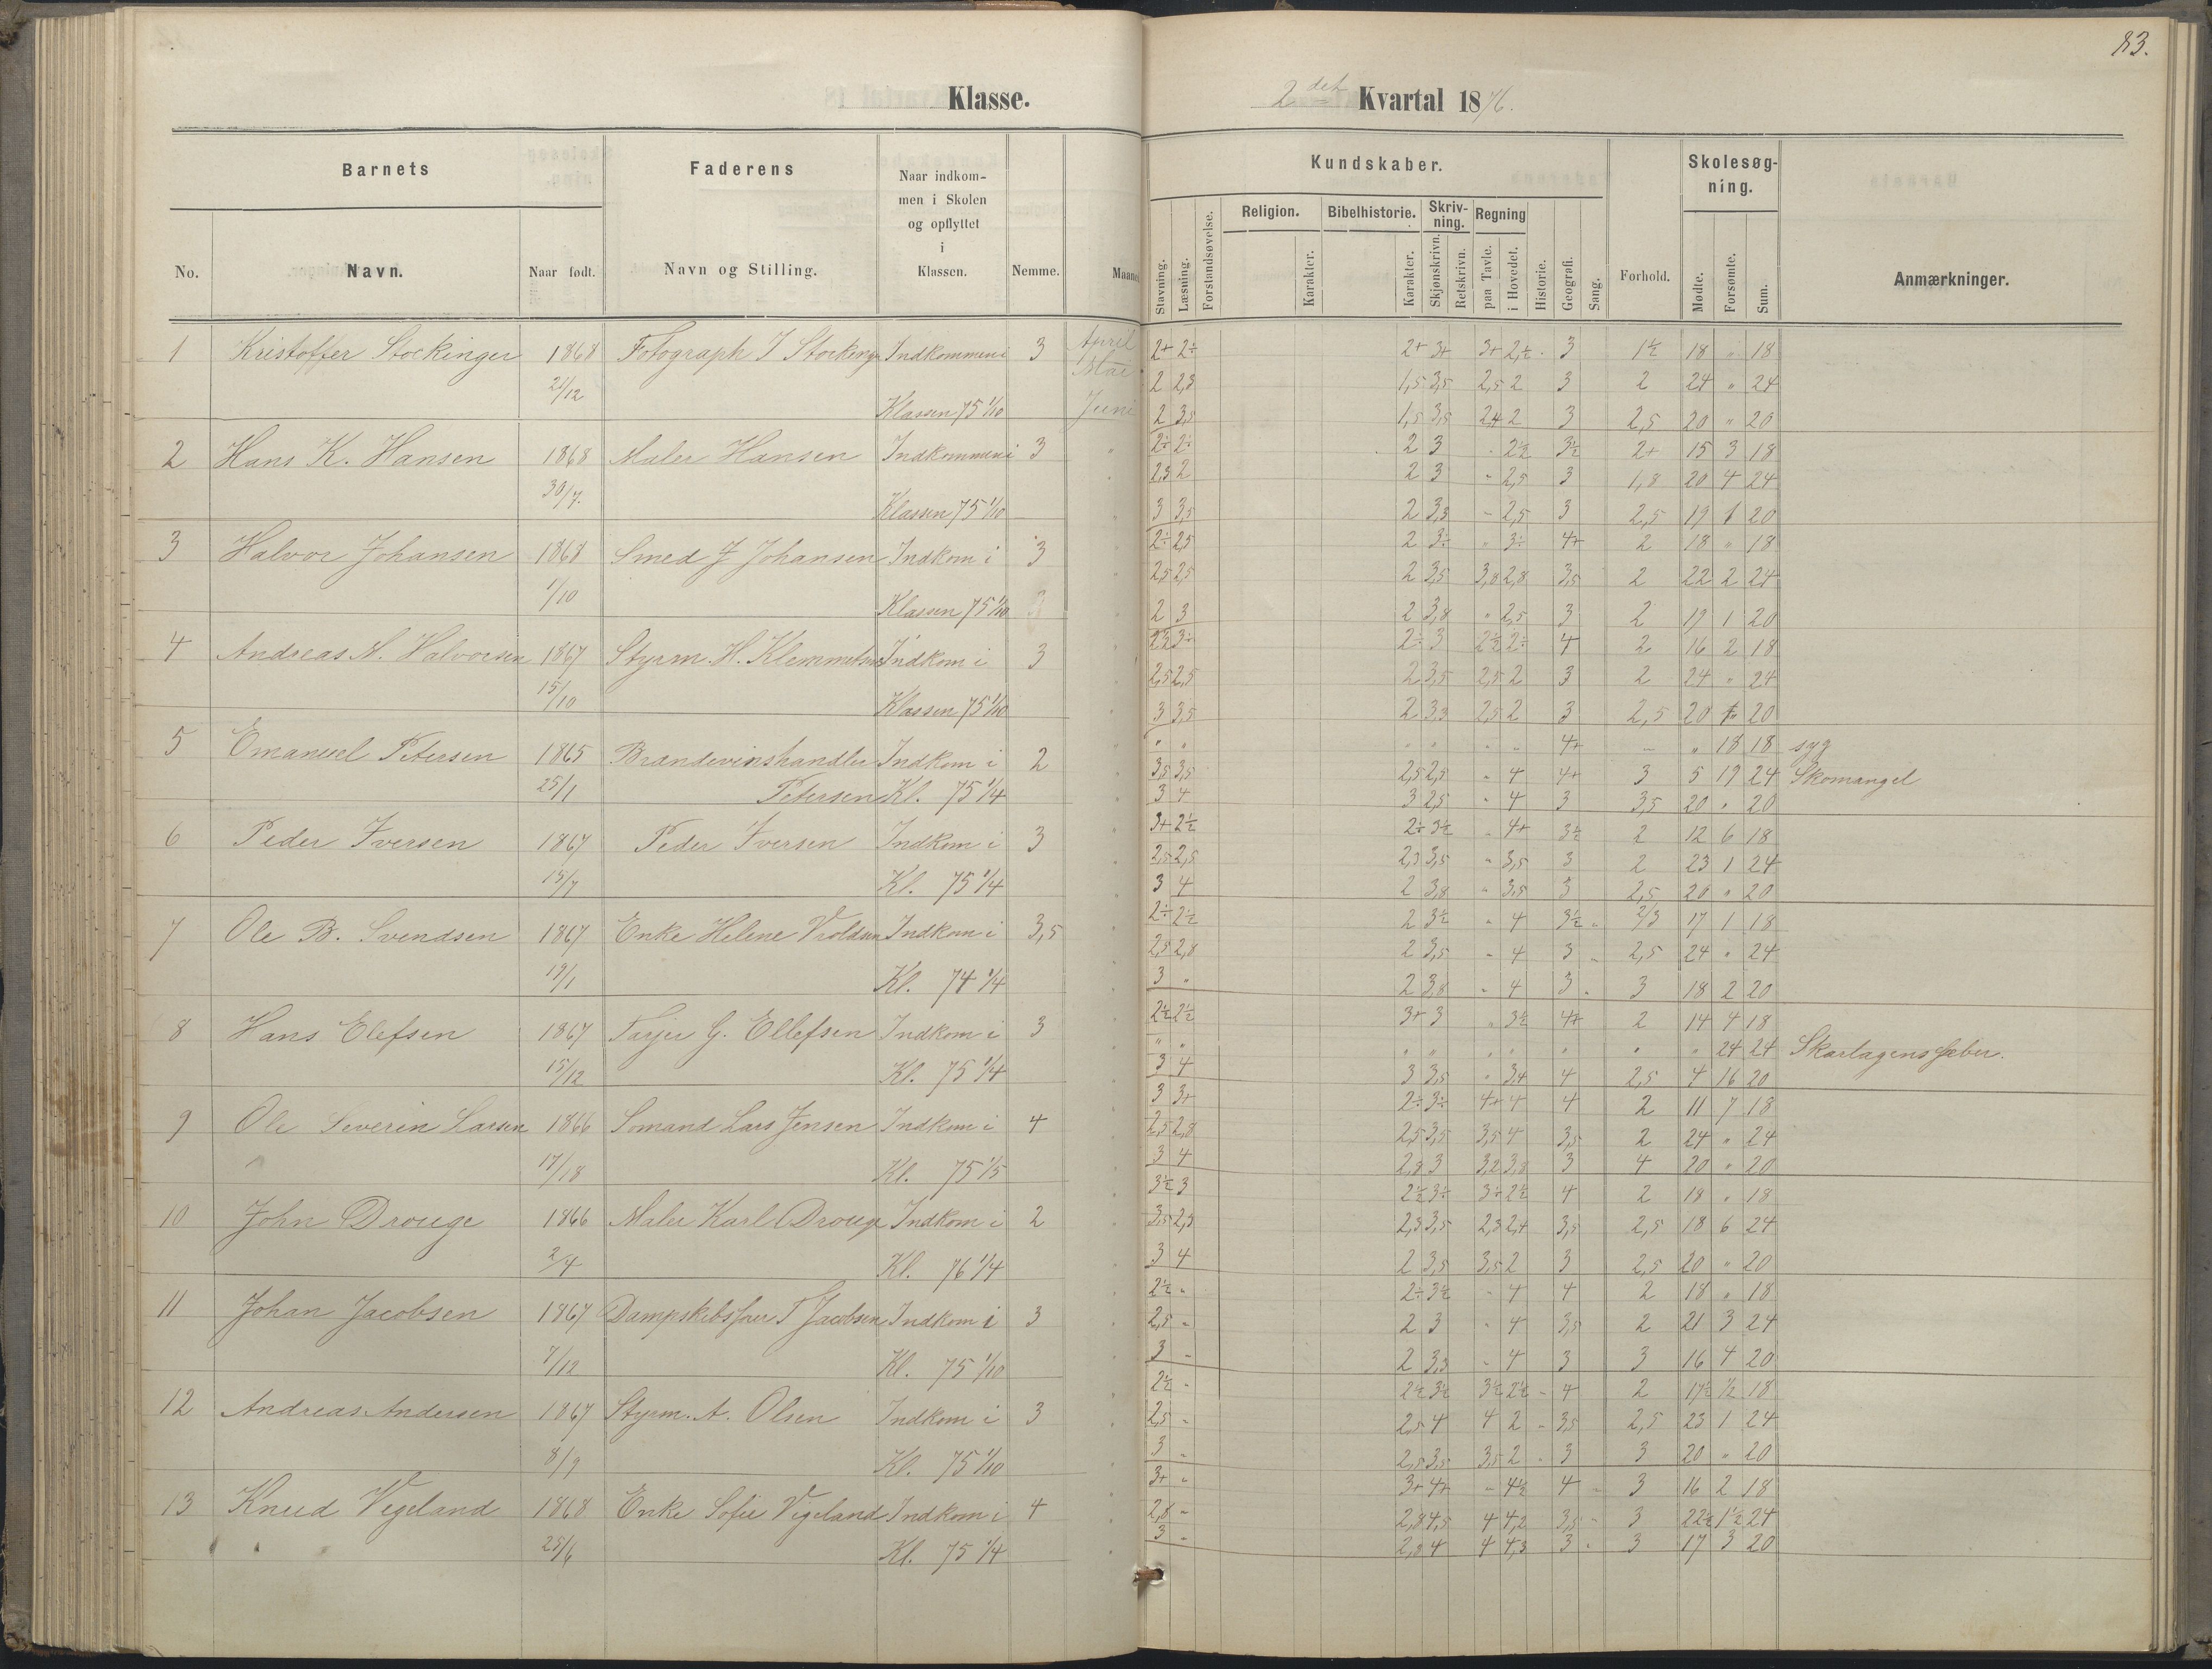 83.
Klasse.
2det Kvartal 1876.
Barnets
Faderens
Naar indkom-
men i Skolen
og opflyttet
i
Klassen.
Kundskaber.
Skolesøg-
ning.
Religion. Bibelhistorie. Skriv-
ning. Regning
No. Navn. Naar født. Navn og Stilling. Nemme. Maaned
Stavning. Læsning. Forstandsøvelse. Karakter. Karakter. Skjønskrivn. Retskrivn. paa Tavle. i Hovedet. Historie. Geografi. Sang. Forhold. Mødte. Forsømte. Sum. Anmærkninger.
1 Kristoffer Stockinger 1868 Fotograph J Stockinger Indkommen i 3 April 2+ 2÷ 2+ 3+ 3+ 2½ 3 1½ 18 " 18
21/12 Mai 2 2,3 1,5 3,5 2,5 2 3 2 24 " 24
Klassen 75 1/10 Juni 2 3,5 1,5 3,5 2,4 2 3 2,5 20 " 20
2 Hans K. Hansen 1868 Maler Hansen Indkommen i 3 " 2÷ 2÷ 2 3 " 2½ 3½ 2+ 15 3 18
30/7. 2,3 2 2 3 " 2,5 3 1,8 20 4 24
Klassen 75 1/10 3 3,5 2 3,3 " 2,5 3 2,5 19 1 20
3 Halvor Johansen 1868 Smed J Johansen Indkom i 3 2÷ 2,5 2 3÷ " 3÷ 4+ 2 18 " 18
1/10 2,5 2,5 2 3,5 3,8 2,8 3,5 2 22 2 24
Klassen 75 1/10 2 3 2 3,8 " 2,5 3 2 19 1 20
4 Andreas N. Halvorsen 1867 Styrm. H. Klemmetsen Indkom i 3 2½ 3÷ 2÷ 3 2½ 2÷ 4 2 16 2 18
15/10 2,5 2,5 2 3,5 2,5 2 3 2 24 " 24
Klassen 75 1/10 3 3,5 2 3,3 2,5 2 3 2,5 20 " 20
5 Emanuel Petersen 1865 Brændevinshandler Indkom i 2 " " " " " " 4+ " " 18 18 syg
25/1 Petersen Kl. 75 1/4 3,5 3,5 2,5 2,5 " 4 4+ 3 5 19 24 Skomangel
3 4 3 2,5 " 4 3 3,5 20 " 20
6 Peder Iversen 1867 Peder Iversen Indkom i 3 3+ 2½ 2÷ 3½ " 4+ 3½ 2 12 6 18
15/7 Kl. 75 1/4 2,5 2,5 2,3 3,5 " 3,5 3 2 23 1 24
3 4 2 3,8 " 3,5 3 2,5 20 " 20
7 Ole B. Svendsen 1867 Enke Helene Vroldsen Indkom i 3,5 2÷ 2½ 2 3½ " 4 3½ " 2/3 17 1 18
19/1 Kl. 74 1/4 2,5 2,8 2 3,5 " 4 3 " 2,5 24 " 24
3 " 2 3,8 " 4 3 " 3 18 2 20
8 Hans Elefsen 1867 Tarjer G. Ellefsen Indkom i 3 2½ 2½ 3+ 3 " 3½ 4+ 2 14 4 18
15/12 Kl. 75 1/4 " " " " " " " " " 24 24 Skarlagensfeber.
3 4 3 3,5 " 3,4 4 2,5 4 16 20
9 Ole Severin Larsen 1866 Sømand Lars Jensen Indkom i 4 3 3+ 2÷ 3÷ 4+ 4 4 2 11 7 18
17/18 Kl. 75 1/5 2,5 2,8 2,5 3,5 3,5 4 3,5 2 24 " 24
3 4 2,8 3 3,2 3,8 3 4 20 " 20
10 John Drouge 1866 Maler Karl Drouge Indkom i 2 3½ 3 2½ 3÷ 3÷ 2½ 4 2 18 " 18
2/4 Kl. 76 1/4 3,5 2,3 2,3 3,5 2,3 2,4 3,5 2,5 18 6 24
3 4 2 3,5 3,5 2 3 2,5 20 " 20
11 Johan Jacobsen 1867 Dampskibsfører T Jacobsen Indkom i 3 2½ " 2÷ 3½ " 4 4 2 18 " 18
7/12 Kl. 75 1/10 2,5 " 2 3 " 4 3,5 2 21 3 24
3 " 2 3,3 " 4 3 3 16 4 20
12 Andreas Andersen 1867 Styrm. A. Olsen Indkom i 3 2½ " 2½ 3½ 3½ 2½ " 4 2 17½ ½ 18
8/9 Kl. 75 1/10 2,5 " 2,5 4 4 2 " 3,5 2,5 23 1 24
3 " 2,5 3,5 3,5 2 " 3 3 20 " 20
13 Knud Vegeland 1868 Enke Sofie Vigeland Indkom i 4 3+ " 3+ 4+ " 4½ 4 " 3 16 2 18
25/6 Kl. 75 1/4 2,8 " 2,8 4,5 4 4,2 3,5 " 3 22½ 1½ 24
3 " 2,8 4 4 4,3 3 " 3 17 3 20